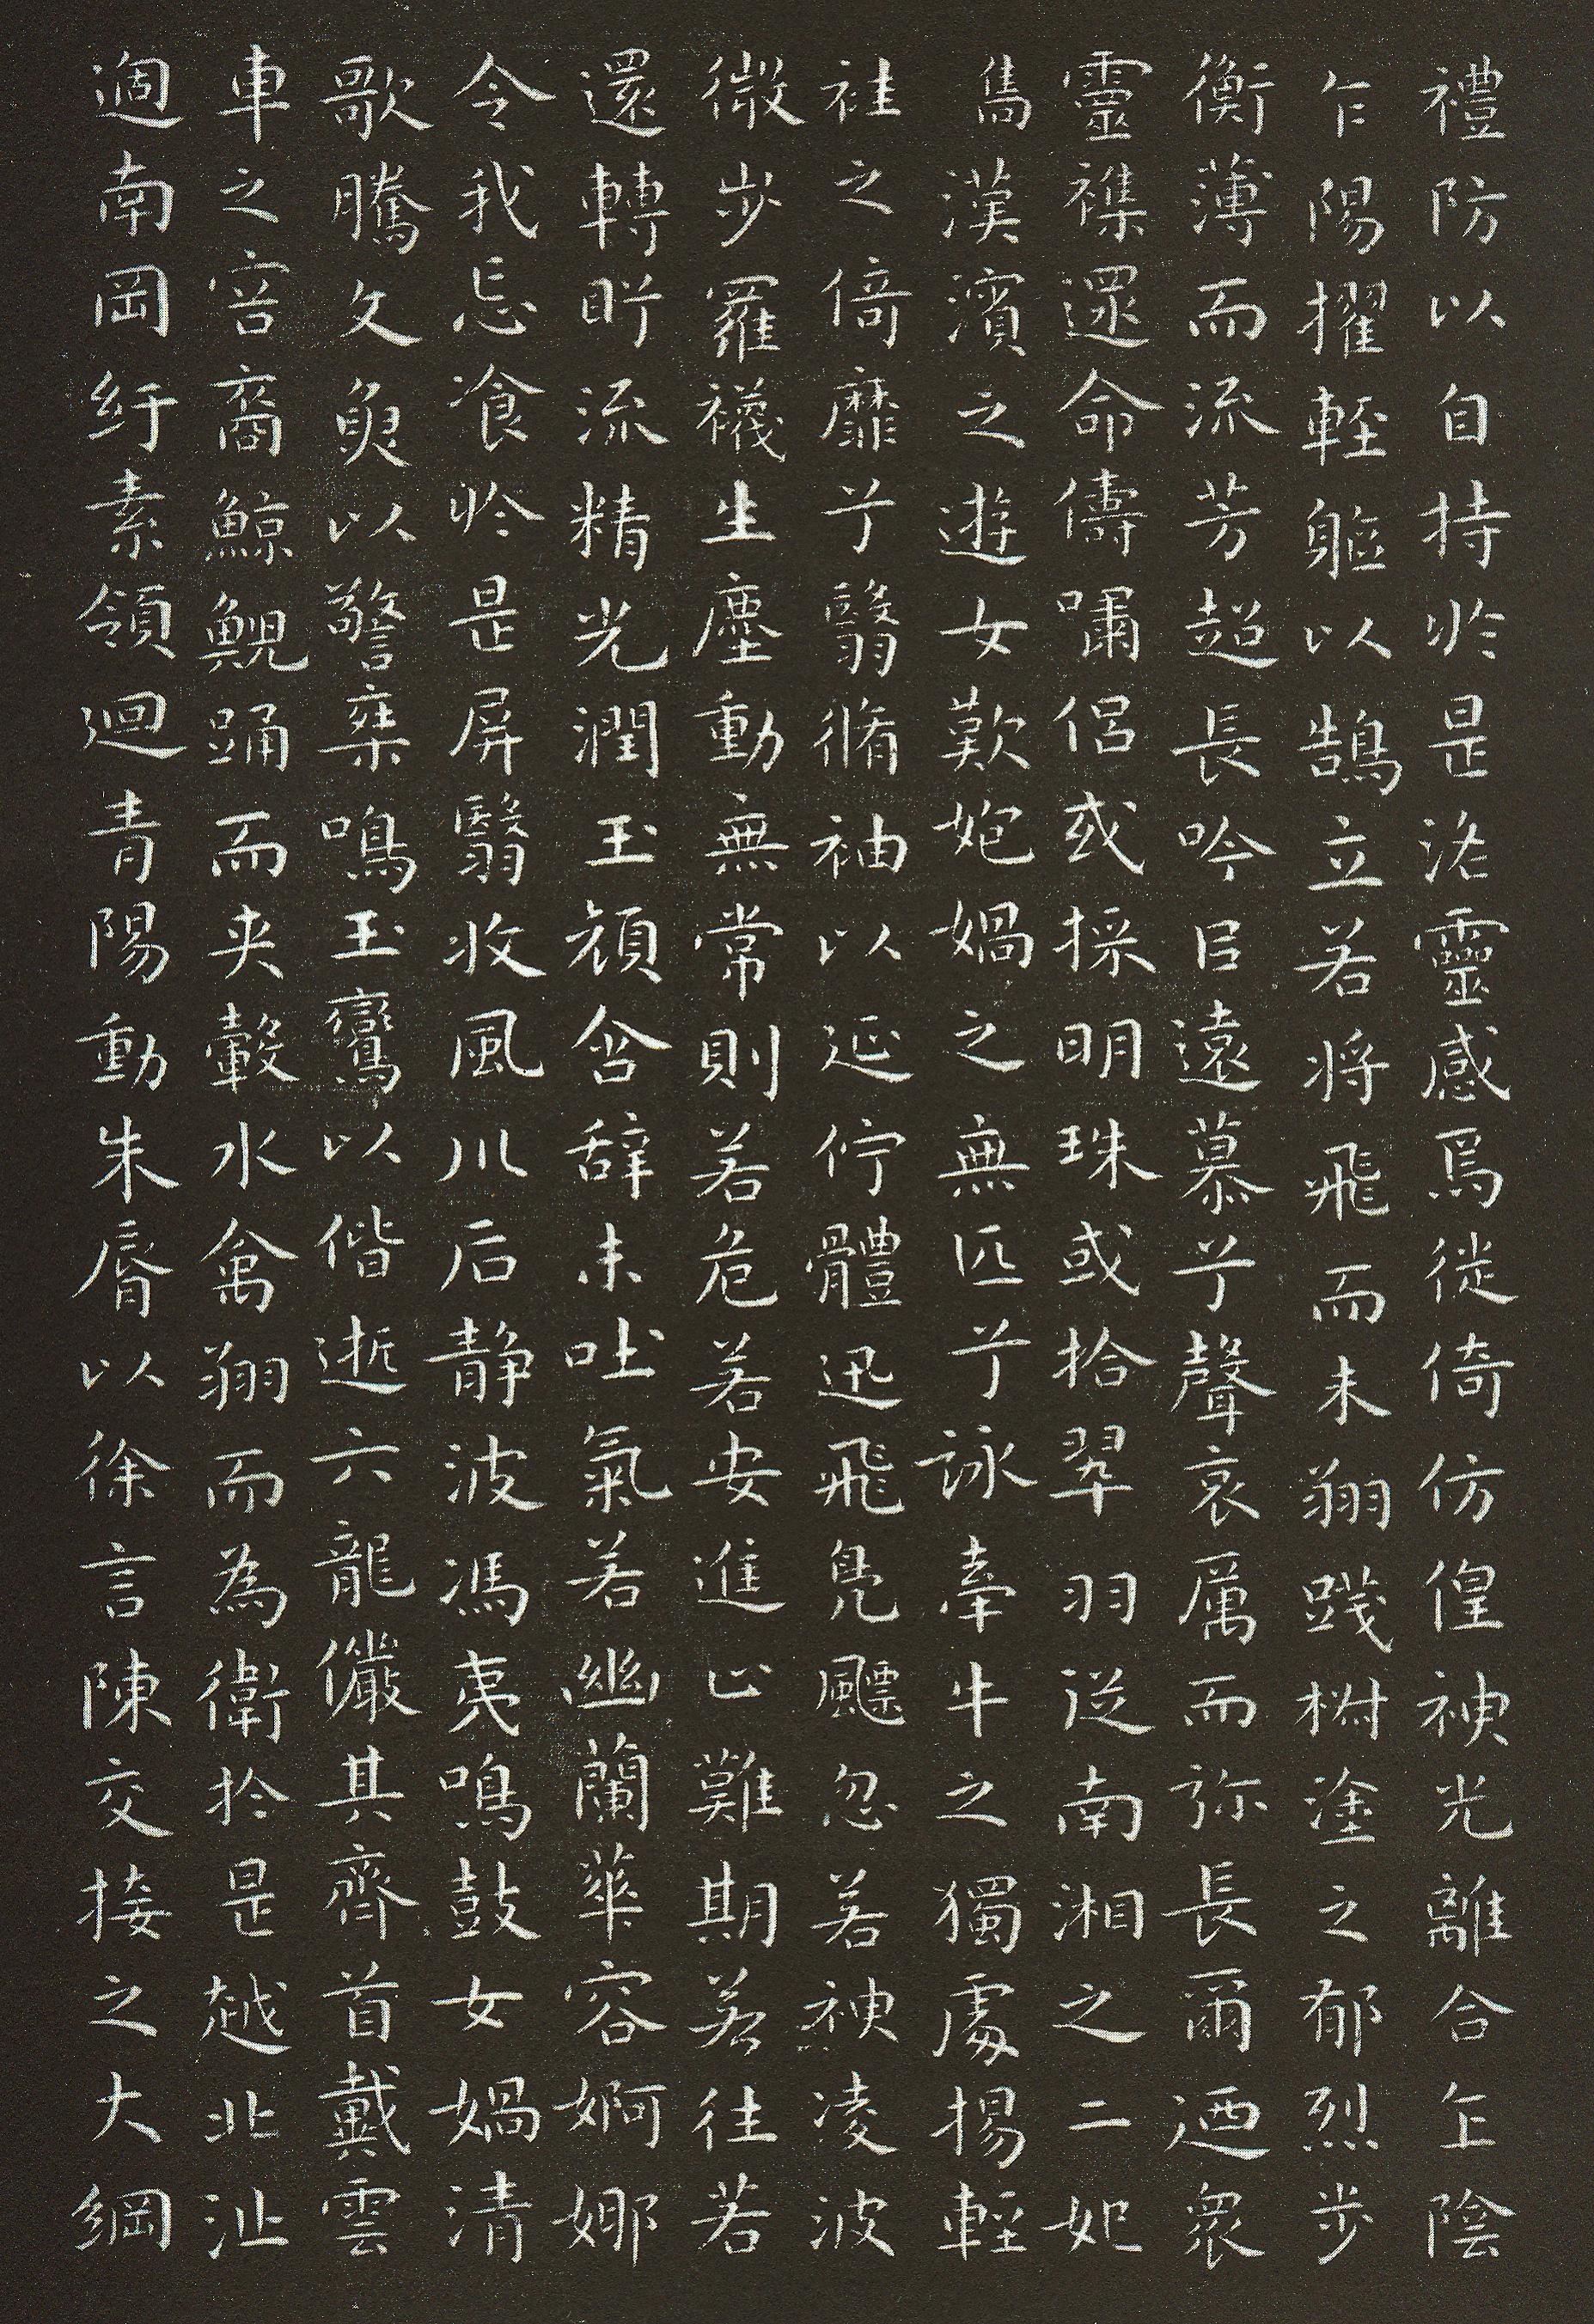 禮防以自持於是洛靈感焉徙倚仿偟神光離合乍陰
乍陽擢輕軀以鵠立若將飛而未翔踐椒塗之郁烈步
衡薄而流芳超長吟以遠慕兮聲哀厲而弥長爾迺衆
靈襍遝命儔嘯侶或採明珠或拾翠羽從南湘之二妃
雋漢濱之遊女歎匏媧之無匹兮詠牽牛之獨處揚輕
袿之倚靡兮翳脩袖以延佇體迅飛鳧飄忽若神凌波
微步羅襪生塵動無常則若危若安進止難期若往若
還轉眄流精光潤玉顏含辞未吐氣若幽蘭華容婀娜
令我忘飡於是屏翳收風川后静波馮夷鳴鼓女媧清
歌騰文魚以警乘鳴玉鸞以偕逝六龍儼其齊首戴雲
車之容裔鯨鯢踊而夾轂水禽翔而為衛於是越北沚
過南岡紆素領迴青陽動朱脣以徐言陳交接之大綱